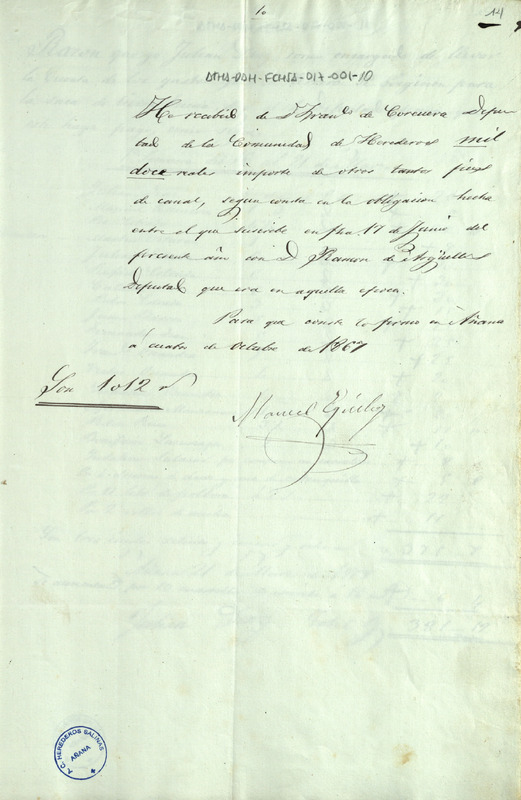 1o
14
ATHA-DAH-FCHSA-017-001-10
He recibido de D. Franco de Corcuera Diputado
de la Comunidad de Herederos mil
doce reales importe de otros tantos
de canal, segun consta en la obligacion hecha
entre el que suscribe en fha 17 de Junio del
presente año con D. Ramon de Argüelles
Diputado que era en aquella epoca.
Para que conste lo firmo en Añana
á cuatro de Octubre de 1867
Son 1012 rs
Manuel
A.C. HEREDEROS SALINAS
AÑANA